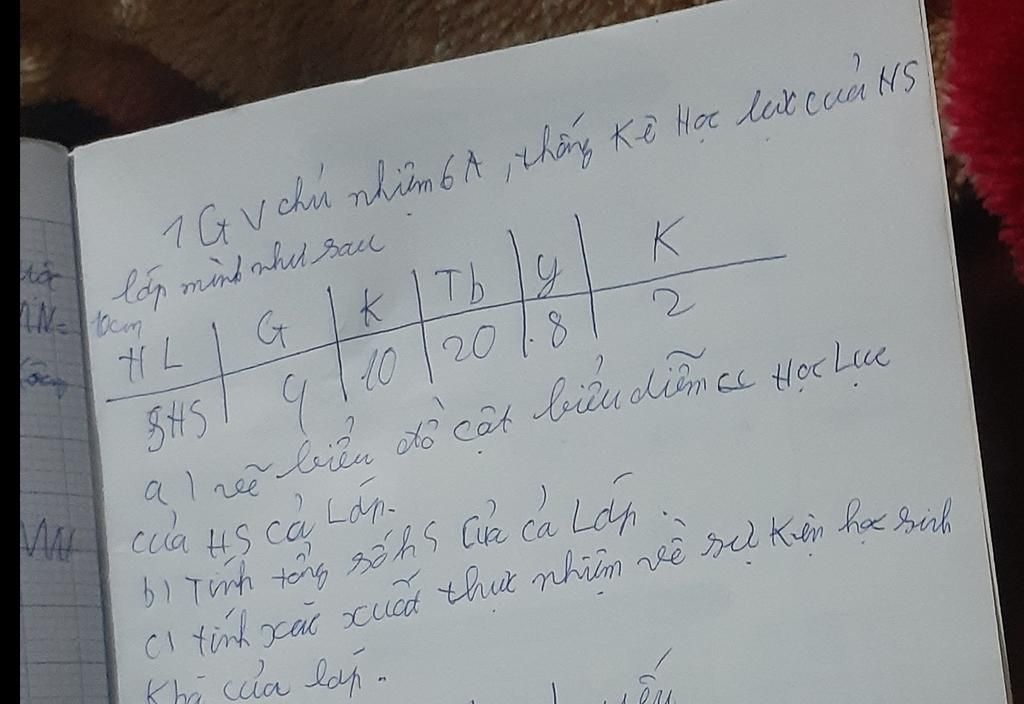 1 GV chủ nhiệm 6A, thống kê Học lực của HS
lớp mình như sau
HL G K Tb y K
SHS 9 10 20 8 2
a) vẽ biểu đồ cột biểu diễn Học Lực
của HS cả Lớp.
b) Tính tổng số hS của cả Lớp.
c) tính xác xuất thực nhiệm về sự kiện học sinh
Khá của lớp.
10cm